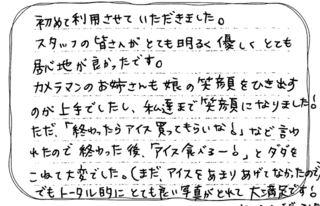 初めて利用させていただきました。
スタッフの皆さんがとても明るく優しくとても
居心地が良かったです。
カメラマンのお姉さんも娘の笑顔をひき出す
のが上手でしたし、私達まで笑顔になりました!
ただ、「終わったらアイス買ってもらいな!」など言わ
れたので終わった後、「アイス食べるー!」とダダを
こねて大変でした。(まだ、アイスをあまりあげてなかったので)
でもトータル的にとても良い写真がとれて大満足です!